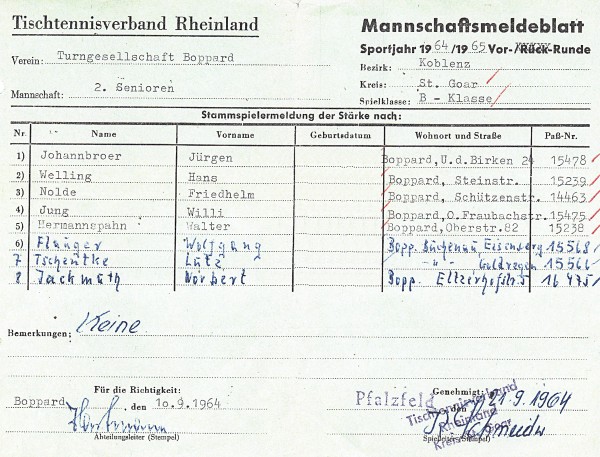 Tischtennisverband Rheinland
Mannschaftsmeldeblatt
Sportjahr 1964/1965 Vor-/Rück-Runde
Verein: Turngesellschaft Boppard
Bezirk: Koblenz
Kreis: St. Goar
Mannschaft: 2. Senioren
Spielklasse: B - Klasse
Stammspielermeldung der Stärke nach:
Nr. Name Vorname Geburtsdatum Wohnort und Straße Paß-Nr.
1) Johannbroer Jürgen Boppard,U.d.Birken 24 15478
2) Welling Hans Boppard, Steinstr. 15239
3) Nolde Friedhelm Boppard, Schützenstr. 14463
4) Jung Willi Boppard,O.Fraubachstr. 15475
5) Hermannspahn Walter Boppard,Oberstr.82 15238
6) Flünger Wolfgang Bopp. Buchenau Eisenberg 15568
7 Tschentke Lutz -"- Goldregen 15566
8 Jackmuth Norbert Bopp. Eltzerhofstr.5 16475
Bemerkungen: Keine
Für die Richtigkeit:
Genehmigt:
Boppard, den 10.9.1964
Pfalzfeld 21.9.1964
Tischtennisverband
Rheinland
Abteilungsleiter (Stempel)
Spielleiter (Stempel)